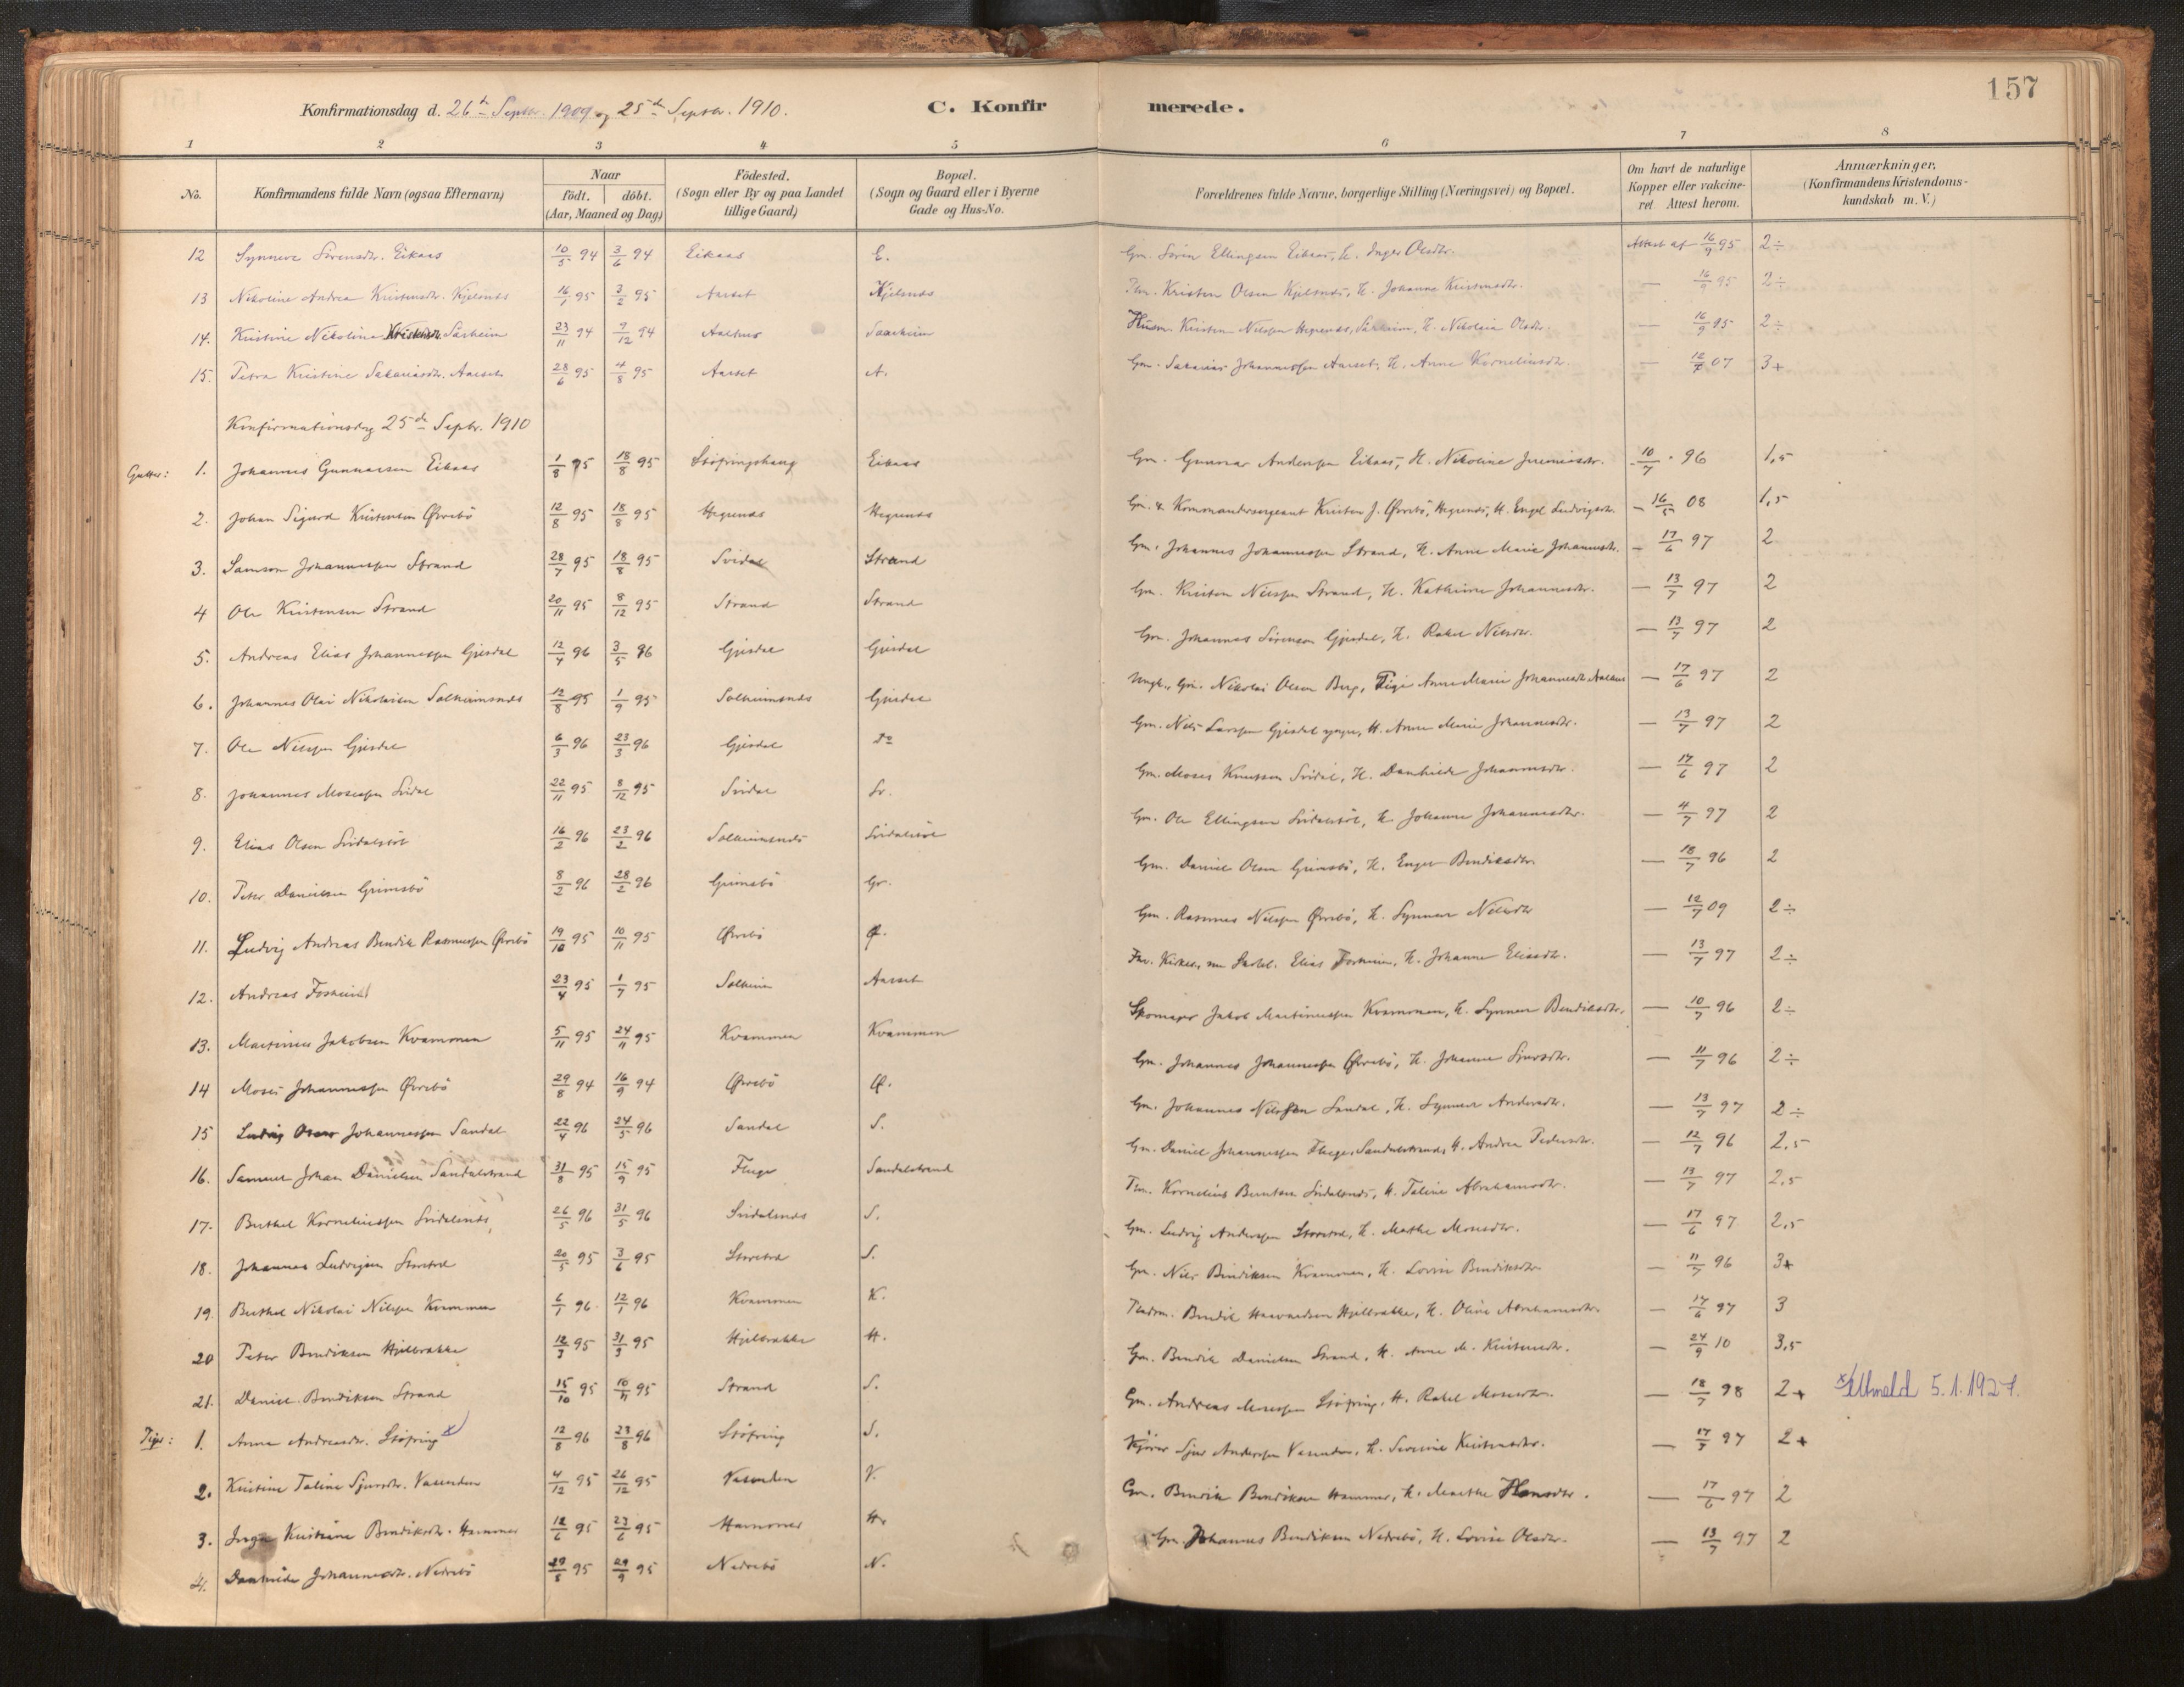 157
Konfirmationsdag d. 26de Septbr. 1909 og 25de Septbr. 1910. C. Konfirmerede.
1 2 3 4 5 6 7 8
No. Konfirmandens fulde Navn (ogsaa Efternavn) Naar födt. döbt. (Aar, Maaned og Dag) Födested. (Sogn eller By og paa Landet tillige Gaard) Bopæl. (Sogn og Gaard eller i Byerne Gade og Hus-No. Forældrenes fulde Navne, borgerlige Stilling (Næringsvei) og Bopæl. Om havt de naturlige Kopper eller vakcineret. Attest herom. Anmærkninger. (Konfirmandens Kristendomskundskab m. V.)
12 Synneve Sörensdtr. Eikaas 10/5 94 3/6 94 Eikaas E. Gm. Sören Ellingsen Eikaas, H. Inger Olsdtr. Attest af 16/9 95 2÷
13 Nikoline Andrea Kristensdtr. Kjelsnæs 16/1 95 3/2 95 Aarset Kjelsnæs Kristen Olsen Kjelsnæs, H. Johanne Kristensdtr. — 16/9 95 2÷
14. Kristine Nikoline Kristensdtr. Sarheim 23/11 94 9/12 94 Aalhus Saarheim Husm. Kristen Nilssen Hegrenæs, Sarheim, H. Nikolea Olsdtr. — 16/9 95 2÷
15. Petra Kristine Sakariasdtr. Aarset 28/6 95 4/8 95 Aarset A. Gm. Sakarias Johannessen Aarset, H. Anne Korneliusdtr. — 12/7 07 3+
Konfirmationsdag 25de Septbr. 1910
Gutter: 1. Johannes Gunnarsen Eikaas 1/8 95 18/8 95 Stöfringshaug Eikaas Gm. Gunnar Anderssen Eikaas, H. Nikoline Jeremiasdtr. — 10/7 96 1,5
2. Johan Sigurd Kristensen Övrebö 12/8 95 18/8 95 Hegrenæs Hegrenæs Gm. & Kommandersergeant Kristen J. Övrebö, Hegrenæs, H. Engel Ludvigsdtr. — 16/5 08 1,5
3. Samson Johannessen Strand 28/7 95 18/8 95 Svidal Strand Gm. Johannes Johannessen Strand, H. Anne Marie Johannesdtr. — 17/6 97 2
4 Ole Kristensen Strand 20/11 95 8/12 95 Strand Strand Gm. Kristen Nilssen Strand, H. Kathrine Johannesdtr. — 13/7 97 2
5. Andreas Elias Johannessen Gjesdal 12/4 96 3/5 96 Gjesdal Gjesdal Gm. Johannes Sörensen Gjesdal, H. Rakel Nilsdtr. — 13/7 97 2
6. Johannes Olai Nikolaisen Solheimsnæs 12/8 95 1/9 95 Solheimsnæs Gjesdal Ungk., Gm. Nikolai Olsen Berg, Pige Anne Marie Johannesdtr Aalhus — 17/6 97 2
7. Ole Nilssen Gjesdal 6/3 96 23/3 96 Gjesdal Do Gm. Nils Larssen Gjesdal yngre, H. Anne Marie Johannesdtr. — 13/7 97 2
8. Johannes Mosessen Svidal 22/11 95 8/12 95 Svidal Sv. Gm. Moses Knutsen Svidal, H. Danhilde Johannesdtr. — 17/6 97 2
9. Elias Olsen Svidalstöl 16/2 96 23/2 96 Solheimsnæs Svidalstöl Gm. Ole Ellingsen Svidalstöl, H. Johanne Johannesdtr. — 4/7 97 2
10. Peter Danielsen Grimsbö 8/2 96 28/2 96 Grimsbö Gr. Gm. Daniel Olsen Grimsbö, H. Engel Bendiksdtr. — 18/7 96 2
11. Ludvig Andreas Bendik Rasmussen Övrebö 19/10 95 10/11 95 Övrebö Ö. Gm. Rasmus Nilssen Övrebö, H. Synneve Nilsdtr — 12/7 09 2÷
12. Andreas Forheim 23/4 95 1/7 95 Solheim Aarset Elias Forheim, H. Johanne Eliasdtr. — 13/7 97 2÷
13. Martinus Jakobsen Kvammen 5/11 95 24/11 95 Kvammen Kvammen Skomager Jakob Martinussen Kvammen, H. Synneve Bendiksdtr. — 10/7 96 2÷
14 Moses Johannessen Övrebö 29/8 94 16/9 94 Övrebö Ö. Gm. Johannes Johannessen Övrebö, H. Johanne Sjursdtr. — 11/7 96 2÷
15 Ludvig Johannessen Sandal 22/4 96 24/5 96 Sandal S. Gm. Johannes Nilssen Sandal, H. Synneve Andersdtr. — 13/7 97 2÷
16. Samuel Johan Danielsen Sandalstrand 31/8 95 15/9 95 Fluge Sandalstrand Gm. Daniel Johannessen Fluge, Sandalstrand, H. Andrea Pedersdtr. — 12/7 96 2,5
17. Berthel Korneliussen Svidalsnæs 26/5 96 31/5 96 Svidalsnæs S. Kornelius Berntsen Svidalsnæs, H. Taline Abrahamsdtr. — 13/7 97 2,5
18. Johannes Ludvigsen Storetvd 20/5 95 3/6 95 S. Gm. Ludvig Anderssen H. Marthe Monsdtr. — 17/6 97 2,5
19. Berthel Nikolai Nilssen Kvammen 6/1 96 12/1 96 Kvammen K. Gm. Nils Bendiksen Kvammen, H. Lovise Bendiksdtr — 11/7 96 3+
20 Peter Bendiksen Hjelbrække 12/3 95 31/3 95 Hjelbrække H. Bendik Haavardsen Hjelbrække, H. Oline Abrahamsdtr. — 17/6 97 3
21. Daniel Bendiksen Strand 15/10 95 10/11 95 Strand S. Gm. Bendik Danielsen Strand, H. Anne M. Kristensdtr. — 24/9 10 3,5
Piger: 1. Anna Andreasdtr. Stöfring x) 12/8 96 23/8 96 Stöfring S. Gm. Andreas Mosessen Stöfring, H. Rakel Mosesdtr. — 18/7 98 2+ x) Utmeld 5.1.1927.
2. Kristine Taline Sjursdtr. Vasenden 4/12 95 26/12 95 Vasenden V. Sjur Anderssen Vasenden, H. Severine Kristensdtr. — 17/7 97 2+
3. Inga Kristine Bendiksdtr. Hammer 12/6 95 23/6 95 Hammer H. Gm. Bendik Bendiksen Hammer, H. Marthe Hansdtr. — 17/6 97 2
4. Danhilde Johannesdtr. Nedrebö 29/8 95 29/9 95 Nedrebö N. Gm. Johannes Bendiksen Nedrebö, H. Lovise Olsdtr. — 13/7 97 2